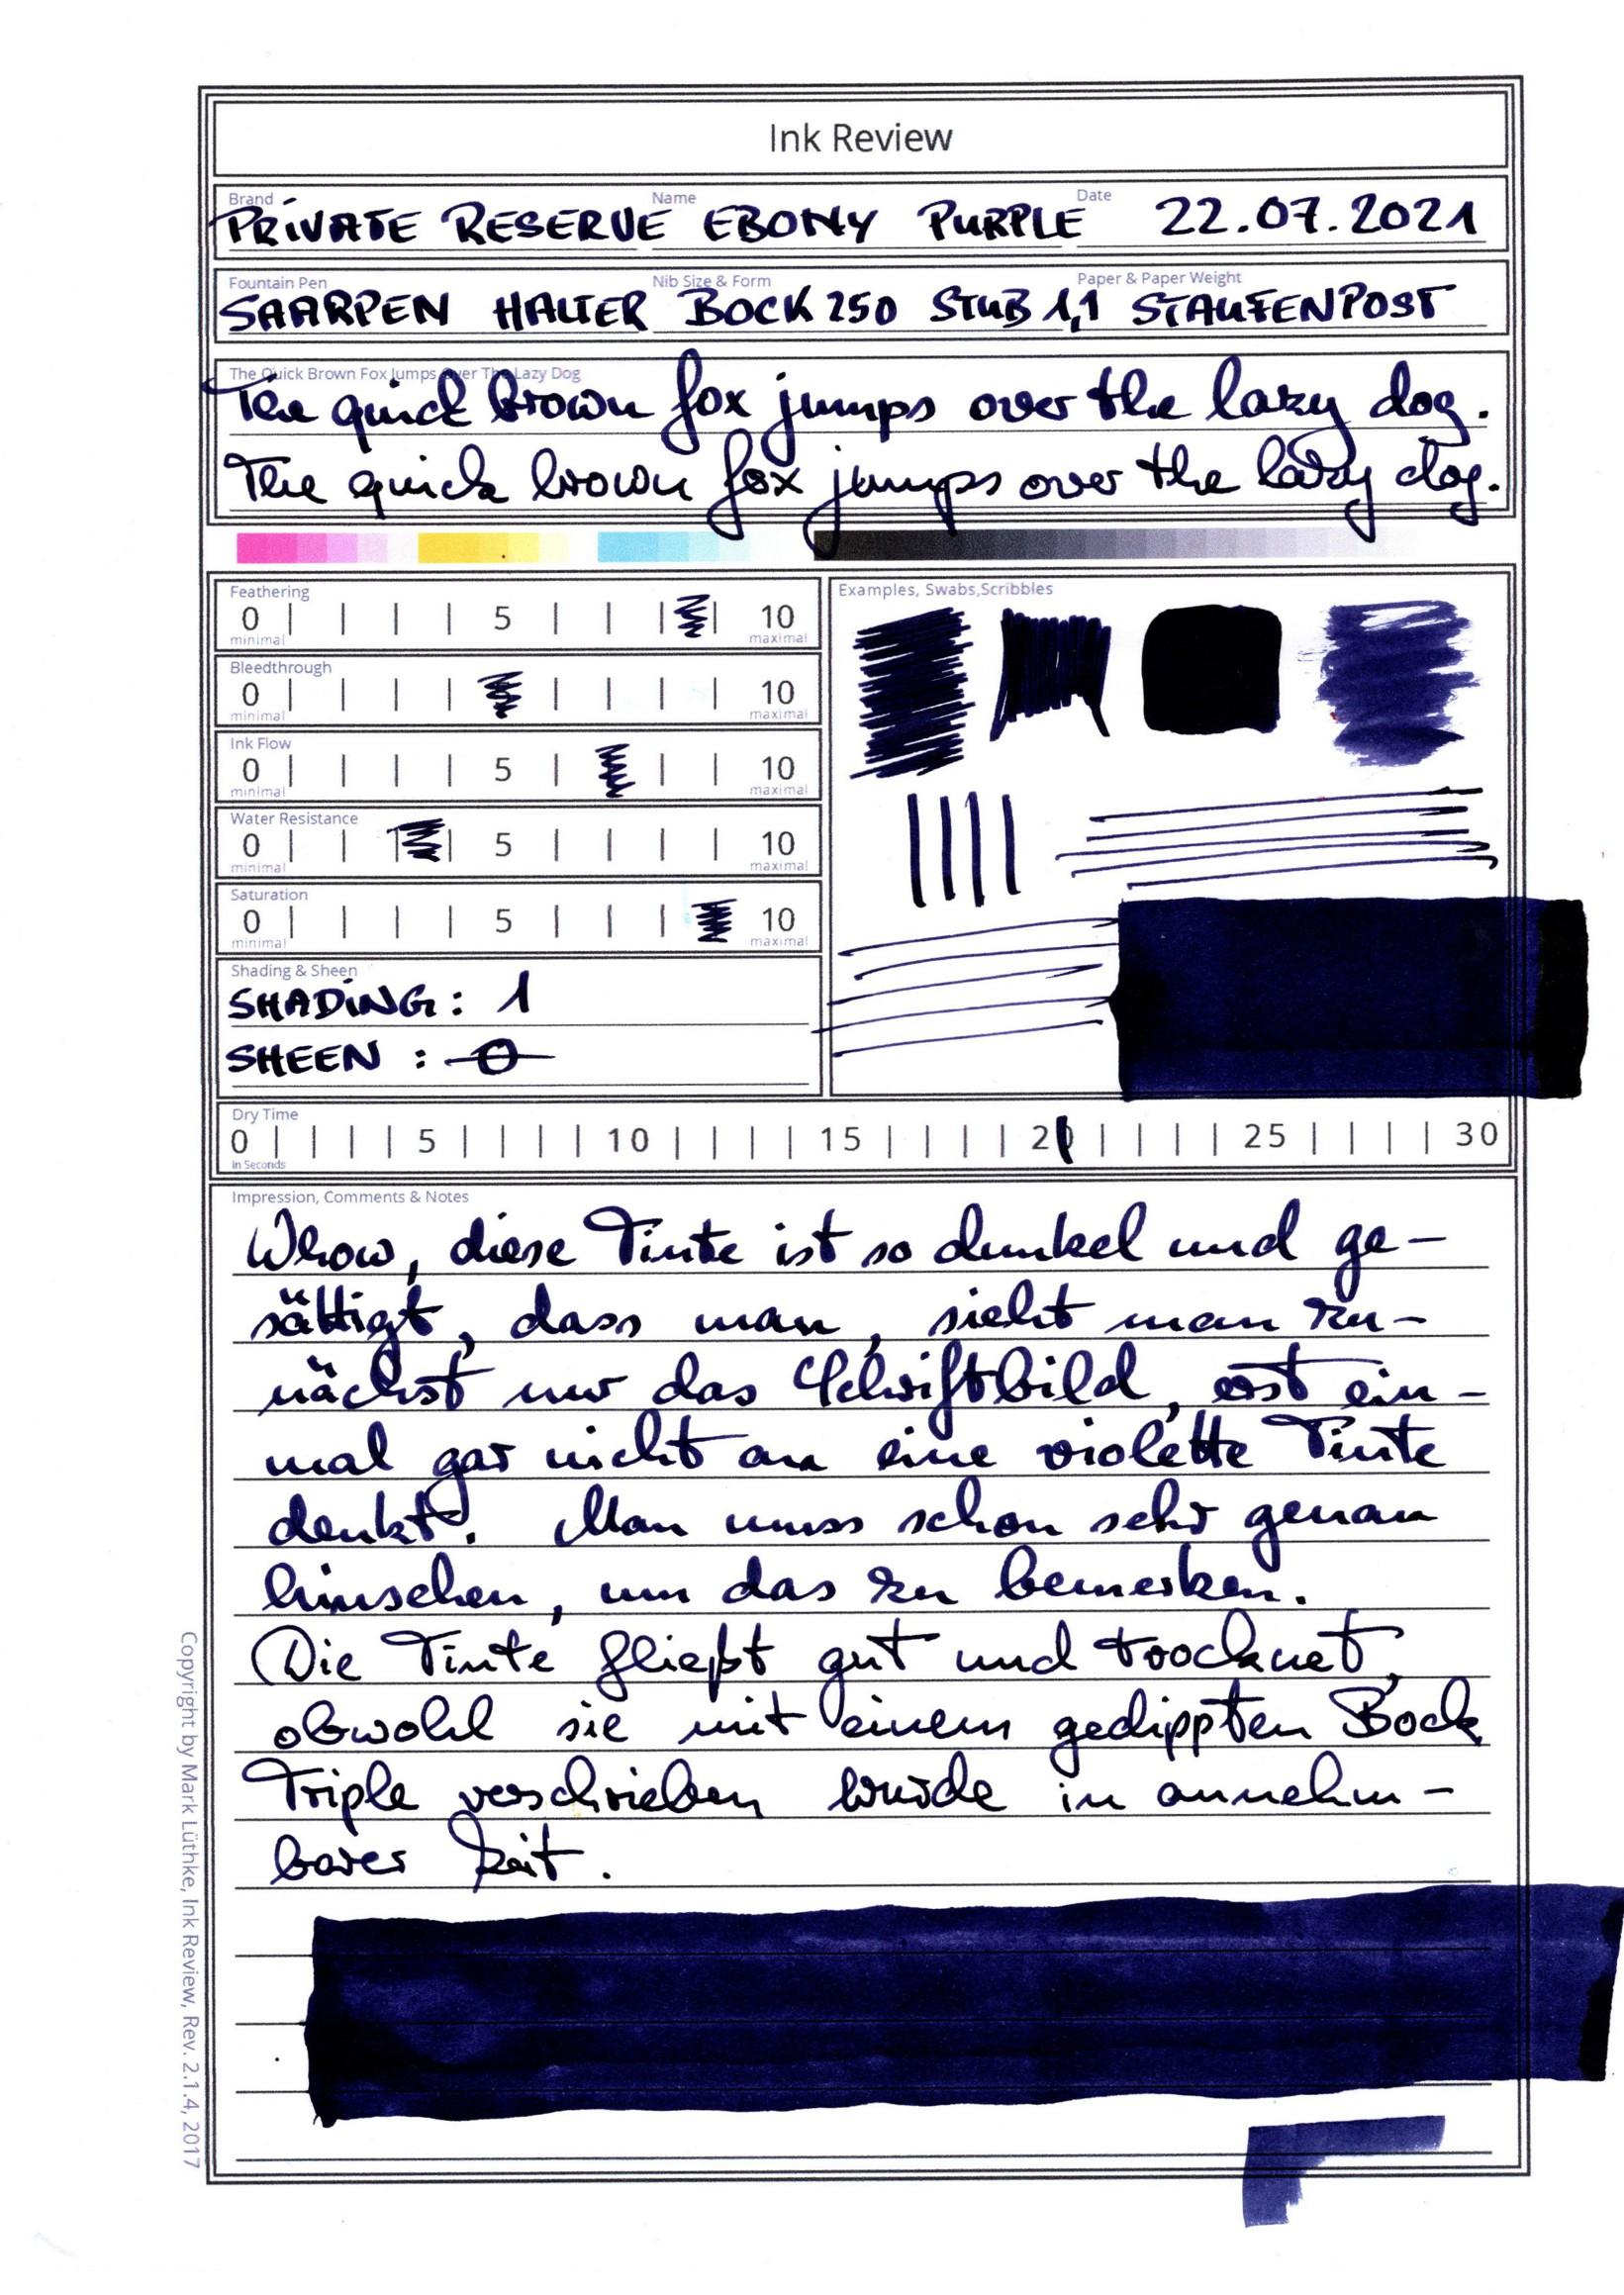 Ink Review
Brand Name Date
PRiVATE RESERVE EBONY PURPLE 22.07.2021
Fountain Pen Nib Size & Form Paper & Paper Weight
SAARPEN HALTER BOCK 250 STUB 1,1 STAUFENPOST
The Quick Brown Fox Jumps Over The Lazy Dog
The quick brown fox jumps over the lazy dog.
The quick brown fox jumps over the lazy dog.
Feathering
0 5 10
minimal maximal
Bleedthrough
0 10
minimal maximal
Ink Flow
0 5 10
minimal maximal
Water Resistance
0 5 10
minimal maximal
Saturation
0 5 10
minimal maximal
Shading & Sheen
SHADiNG: 1
SHEEN : 0
Examples, Swabs,Scribbles
Dry Time
0 5 10 15 20 25 30
In Seconds
Impression, Comments & Notes
Whow, diese Tinte ist so dunkel und ge-
sättigt, dass man, sieht man zu-
nächst nur das Schriftbild, erst ein-
mal gar nicht an eine violette Tinte
denkt. Man muss schon sehr genau
hinsehen, um das zu bemerken.
Die Tinte fließt gut und troocknet,
obwohl sie mit einem gedippten Bock
Triple verschrieben wurde in annehm-
barer Zeit.
Copyright by Mark Lüthke, Ink Review, Rev. 2.1.4, 2017